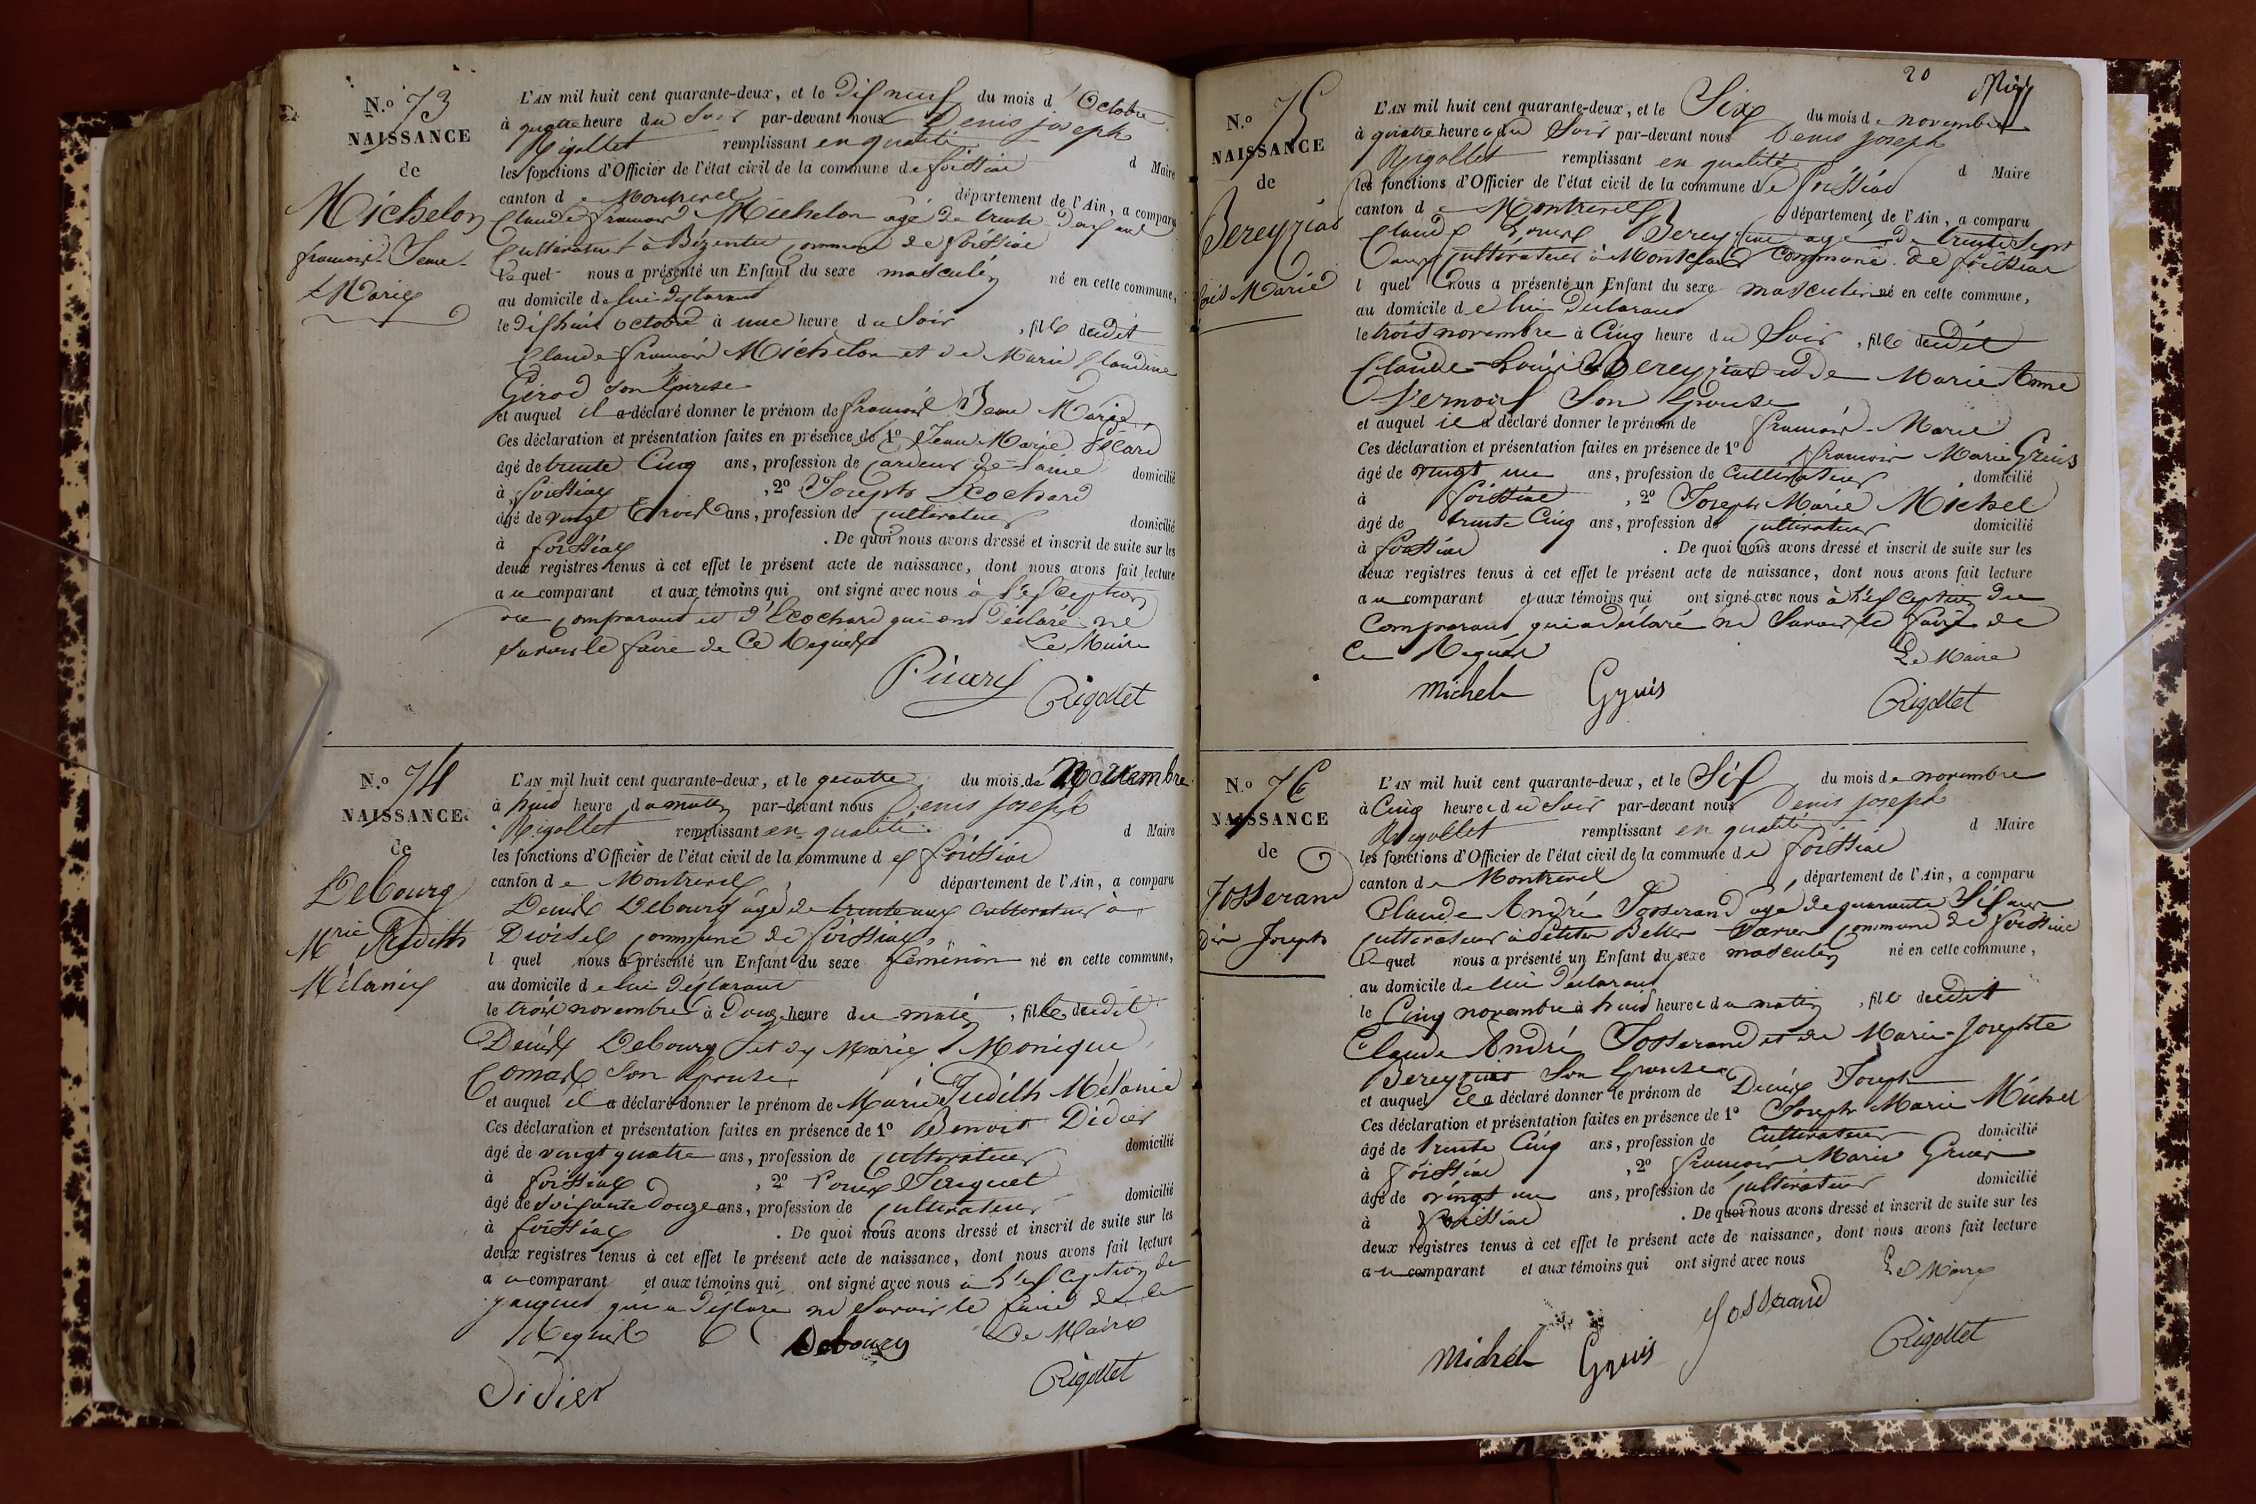 N.º 73
NAISSANCE
de
Michelon
françois Jean
Marie
L'AN mil huit cent quarante-deux, et le disneuf du mois d'Octobre
à quatre heure du Soir par-devant nous Denis joseph
Rigollet remplissant en qualité d Maire
les fonctions d'Officier de l'état civil de la commune de foissiat
canton de Montrevel département de l'Ain, a comparu
Claude françois Michelon agé de trente ans
Cultivateur à commune de foissiat
lequel nous a présenté un Enfant du sexe masculin né en cette commune,
au domicile de lui déclarant
le dishuit octobre à une heure du Soir, fils dudit
Claude françois Michelon et de Marie Claudine
Gérod son Epouse
et auquel il a déclaré donner le prénom de françois Jean Marie
Ces déclaration et présentation faites en présence de 1º Jean Marie Picard
âgé de trente Cinq ans, profession de cardeur de laine domicilié
à foissiat, 2º Joseph Ecochard
âgé de vingt trois ans, profession de cultivateur domicilié
à foissiat. De quoi nous avons dressé et inscrit de suite sur les
deux registres tenus à cet effet le présent acte de naissance, dont nous avons fait lecture
au comparant et aux témoins qui ont signé avec nous à l'esception
du comparant et d'Ecochard qui ont déclaré ne
savoir le faire de ce Requis
Le Maire
Picard
Rigollet
N.º 74
NAISSANCE
de
Debourg
Mrie Judith
Mélanie
L'AN mil huit cent quarante-deux, et le quatre du mois de Novembre
à huit heure du matin par-devant nous Denis joseph
Rigollet remplissant en qualité d Maire
les fonctions d'Officier de l'état civil de la commune de foissiat
canton de Montrevel département de l'Ain, a comparu
Denis Debourg agé de trente cultivateur à
commune de foissiat
l quel nous a présenté un Enfant du sexe féminin né en cette commune,
au domicile de lui déclarant
le trois novembre à douze heure du matin, fille dudit
Denis Debourg et de Marie Monique
Comas son Epouse
et auquel il a déclaré donner le prénom de Marie Judith Mélanie
Ces déclaration et présentation faites en présence de 1º Benoit Didier
âgé de vingt quatre ans, profession de cultivateur domicilié
à foissiat, 2º Louis
âgé de soisante douze ans, profession de cultivateur domicilié
à foissiat. De quoi nous avons dressé et inscrit de suite sur les
deux registres tenus à cet effet le présent acte de naissance, dont nous avons fait lecture
au comparant et aux témoins qui ont signé avec nous à l'esception de
qui a déclaré ne savoir le faire de ce
Requis
Debourg
Le Maire
Didier
Rigollet
20
N.º 75
NAISSANCE
de
Bereyziat
Marie
L'AN mil huit cent quarante-deux, et le Six du mois de novembre
à quatre heure du Soir par-devant nous Denis joseph
Rigollet remplissant en qualité d Maire
les fonctions d'Officier de l'état civil de la commune de foissiat
canton de Montrevel département de l'Ain, a comparu
Claude Louis Bereyziat agé de trente Sept
ans cultivateur à commune de foissiat
l quel nous a présenté un Enfant du sexe masculin né en cette commune,
au domicile de lui déclarant
le trois novembre à Cinq heure du Soir, fils dudit
Claude Louis Bereyziat et de Marie Anne
Pernoux Son Epouse
et auquel il a déclaré donner le prénom de françois Marie
Ces déclaration et présentation faites en présence de 1º françois Marie
âgé de vingt un ans, profession de cultivateur domicilié
à foissiat, 2º Joseph Marie Michel
âgé de trente Cinq ans, profession de cultivateur domicilié
à foissiat. De quoi nous avons dressé et inscrit de suite sur les
deux registres tenus à cet effet le présent acte de naissance, dont nous avons fait lecture
au comparant et aux témoins qui ont signé avec nous à l'esception du
comparant qui a déclaré ne Savoir le faire de
ce Requis
Le Maire
Michel
Rigollet
N.º 76
NAISSANCE
de
Josserand
Joseph
L'AN mil huit cent quarante-deux, et le Sis du mois de novembre
à Cinq heure du Soir par-devant nous Denis joseph
Rigollet remplissant en qualité d Maire
les fonctions d'Officier de l'état civil de la commune de foissiat
canton de Montrevel département de l'Ain, a comparu
Claude André Josserand agé de quarante Sis ans
cultivateur à commune de foissiat
lequel nous a présenté un Enfant du sexe masculin né en cette commune,
au domicile de lui déclarant
le Cinq novembre à huit heure du matin, fils dudit
Claude André Josserand et de Marie-Josephte
Bereyziat Son Epouse
et auquel il a déclaré donner le prénom de Denis Joseph
Ces déclaration et présentation faites en présence de 1º Joseph Marie Michel
âgé de trente Cinq ans, profession de cultivateur domicilié
à foissiat, 2º françois Marie
âgé de vingt un ans, profession de cultivateur domicilié
à foissiat. De quoi nous avons dressé et inscrit de suite sur les
deux registres tenus à cet effet le présent acte de naissance, dont nous avons fait lecture
au comparant et aux témoins qui ont signé avec nous
Le Maire
Josserand
Michel
Rigollet